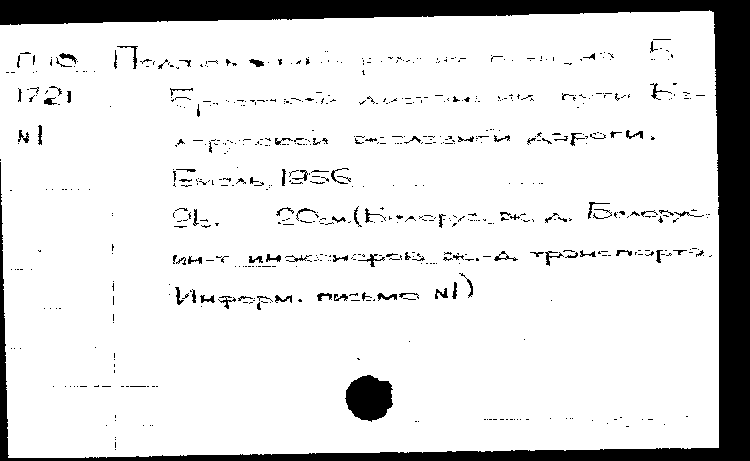 П10
1721
N1
Б
Брестской дистанции пути Бе-
лорусской железной дороги.
Гомель, 1956
2л. 20см. (Белорус. ж. д. Белорус.
ин-т инженеров ж.-д. транспорта.
Информ. письмо N1)